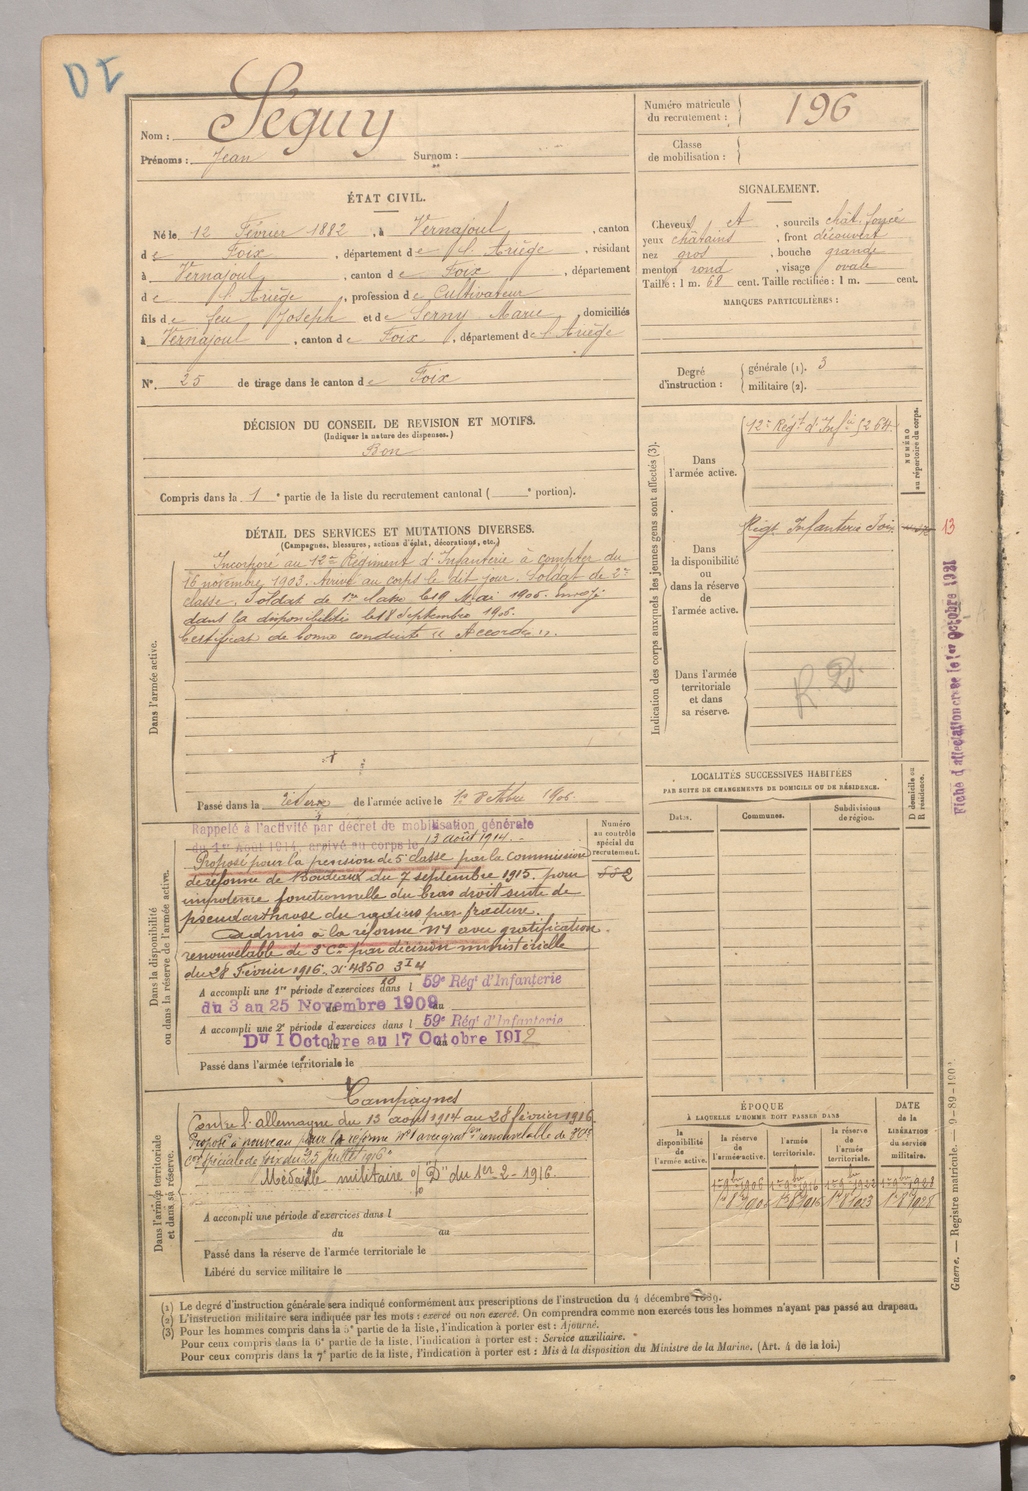 DI
Nom : Séguy
Prénoms : Jean Surnom : "
Numéro matricule du recrutement : 196
Classe de mobilisation :
ÉTAT CIVIL.
Né le 12 Février 1882, à Vernajoul, canton
de Foix, département de l'Ariège, résidant
à Vernajoul, canton de Foix, département
de l'Ariège, profession de Cultivateur
fils de feu Joseph et de Serny Marie, domiciliés
à Vernajoul, canton de Foix, département de l'Ariège
N° 25 de tirage dans le canton de Foix
SIGNALEMENT.
Cheveux et, sourcils chât. foncé
yeux châtains, front découvert
nez gros, bouche grande
menton rond, visage ovale
Taille : 1 m. 68 cent. Taille rectifiée : 1 m. cent.
MARQUES PARTICULIÈRES :
Degré d'instruction : générale (1). 3
militaire (2).
DÉCISION DU CONSEIL DE REVISION ET MOTIFS.
(Indiquer la nature des dispenses.)
Bon
Compris dans la 1e partie de la liste du recrutement cantonal ( e portion).
DÉTAIL DES SERVICES ET MUTATIONS DIVERSES.
(Campagnes, blessures, actions d'éclat, décorations, etc.)
Dans l'armée active.
Incorporé au 12e Régiment d'Infanterie à compter du
16 novembre 1903. Arrivé au corps le dit jour. Soldat de 2e
classe. Soldat de 1re classe le 19 Mai 1905. envoyé
dans la disponibilité le 18 Septembre 1906.
Certificat de bonne conduite "Accordé".
Passé dans la réserve de l'armée active le 1er Octobre 1906.
Indication des corps auxquels les jeunes gens sont affectés (3).
NUMÉRO au répertoire du corps.
Dans l'armée active.
12e Régt d'Infie 5264
Dans la disponibilité ou dans la réserve de l'armée active.
Régt Infanterie Foix
13
Dans l'armée territoriale et dans sa réserve.
R. D.
Fiche d'affectation créée le 1er Octobre 1921
Dans la disponibilité ou dans la réserve de l'armée active.
Rappelé à l'activité par décret de mobilisation générale
du 1er Août 1914, arrivé au corps le 13 août 1914.
Proposé pour la pension de 5e classe par la commission
de réforme de Bordeaux du 7 septembre 1915. pour
impotence fonctionnelle du bras droit suite de
pseudarthrose du radius par fracture.
Admis à la réforme N°1 avec gratification
renouvelable de 3e Cie par décision ministérielle
du 28 Février 1916. N° 4850 3 I 4
A accompli une 1re période d'exercices dans l 59e Régt d'Infanterie
du 3 au 25 Novembre 1909
A accompli une 2e période d'exercices dans l 59e Régt d'Infanterie
Du 1 Octobre au 17 Octobre 1912
Passé dans l'armée territoriale le
Numéro au contrôle spécial du recrutement.
552
LOCALITÉS SUCCESSIVES HABITÉES
PAR SUITE DE CHANGEMENTS DE DOMICILE OU DE RÉSIDENCE.
Dates. Communes. Subdivisions de région. D domicile ou R résidence.
Dans l'armée territoriale et dans sa réserve.
Campagnes
Contre l'allemagne du 13 août 1914 au 28 février 1916
Proposé à nouveau pour la réforme N°1 avec grat on renouvelable de
Con spéciale de foix du 25 juillet 1916
Médaille militaire of "D" du 1er-2-1916.
A accompli une période d'exercices dans l
du au
Passé dans la réserve de l'armée territoriale le
Libéré du service militaire le
ÉPOQUE
À LAQUELLE L'HOMME DOIT PASSER DANS
DATE de la LIBÉRATION du service militaire.
la disponibilité de l'armée active. la réserve de l'armée active. l'armée territoriale. la réserve de l'armée territoriale.
1er 9bre 1906 1er 9bre 1916 1er 9bre 1922 1er 9bre 1928
1er 8bre 1906 1er 8bre 1916 1er 8bre 1923 1er 8bre 1928
Guerre. — Registre matricule. — 9-89-190
(1) Le degré d'instruction générale sera indiqué conformément aux prescriptions de l'instruction du 4 décembre 1889.
(2) L'instruction militaire sera indiquée par les mots : exercé ou non exercé. On comprendra comme non exercés tous les hommes n'ayant pas passé au drapeau.
(3) Pour les hommes compris dans la 5e partie de la liste, l'indication à porter est : Ajourné.
Pour ceux compris dans la 6e partie de la liste, l'indication à porter est : Service auxiliaire.
Pour ceux compris dans la 7e partie de la liste, l'indication à porter est : Mis à la disposition du Ministre de la Marine. (Art. 4 de la loi.)